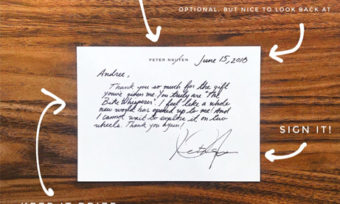 OPTIONAL, BUT NICE TO LOOK BACK AT
PETER NGUYEN
June 15, 2015
Andree,
Thank you so much for the gift
you've given me. You truly are "The
Bike Whisperer". I feel like a whole
new world has opened up to me! And
I cannot wait to explore it on two
wheels. Thank you again!
SIGN IT!